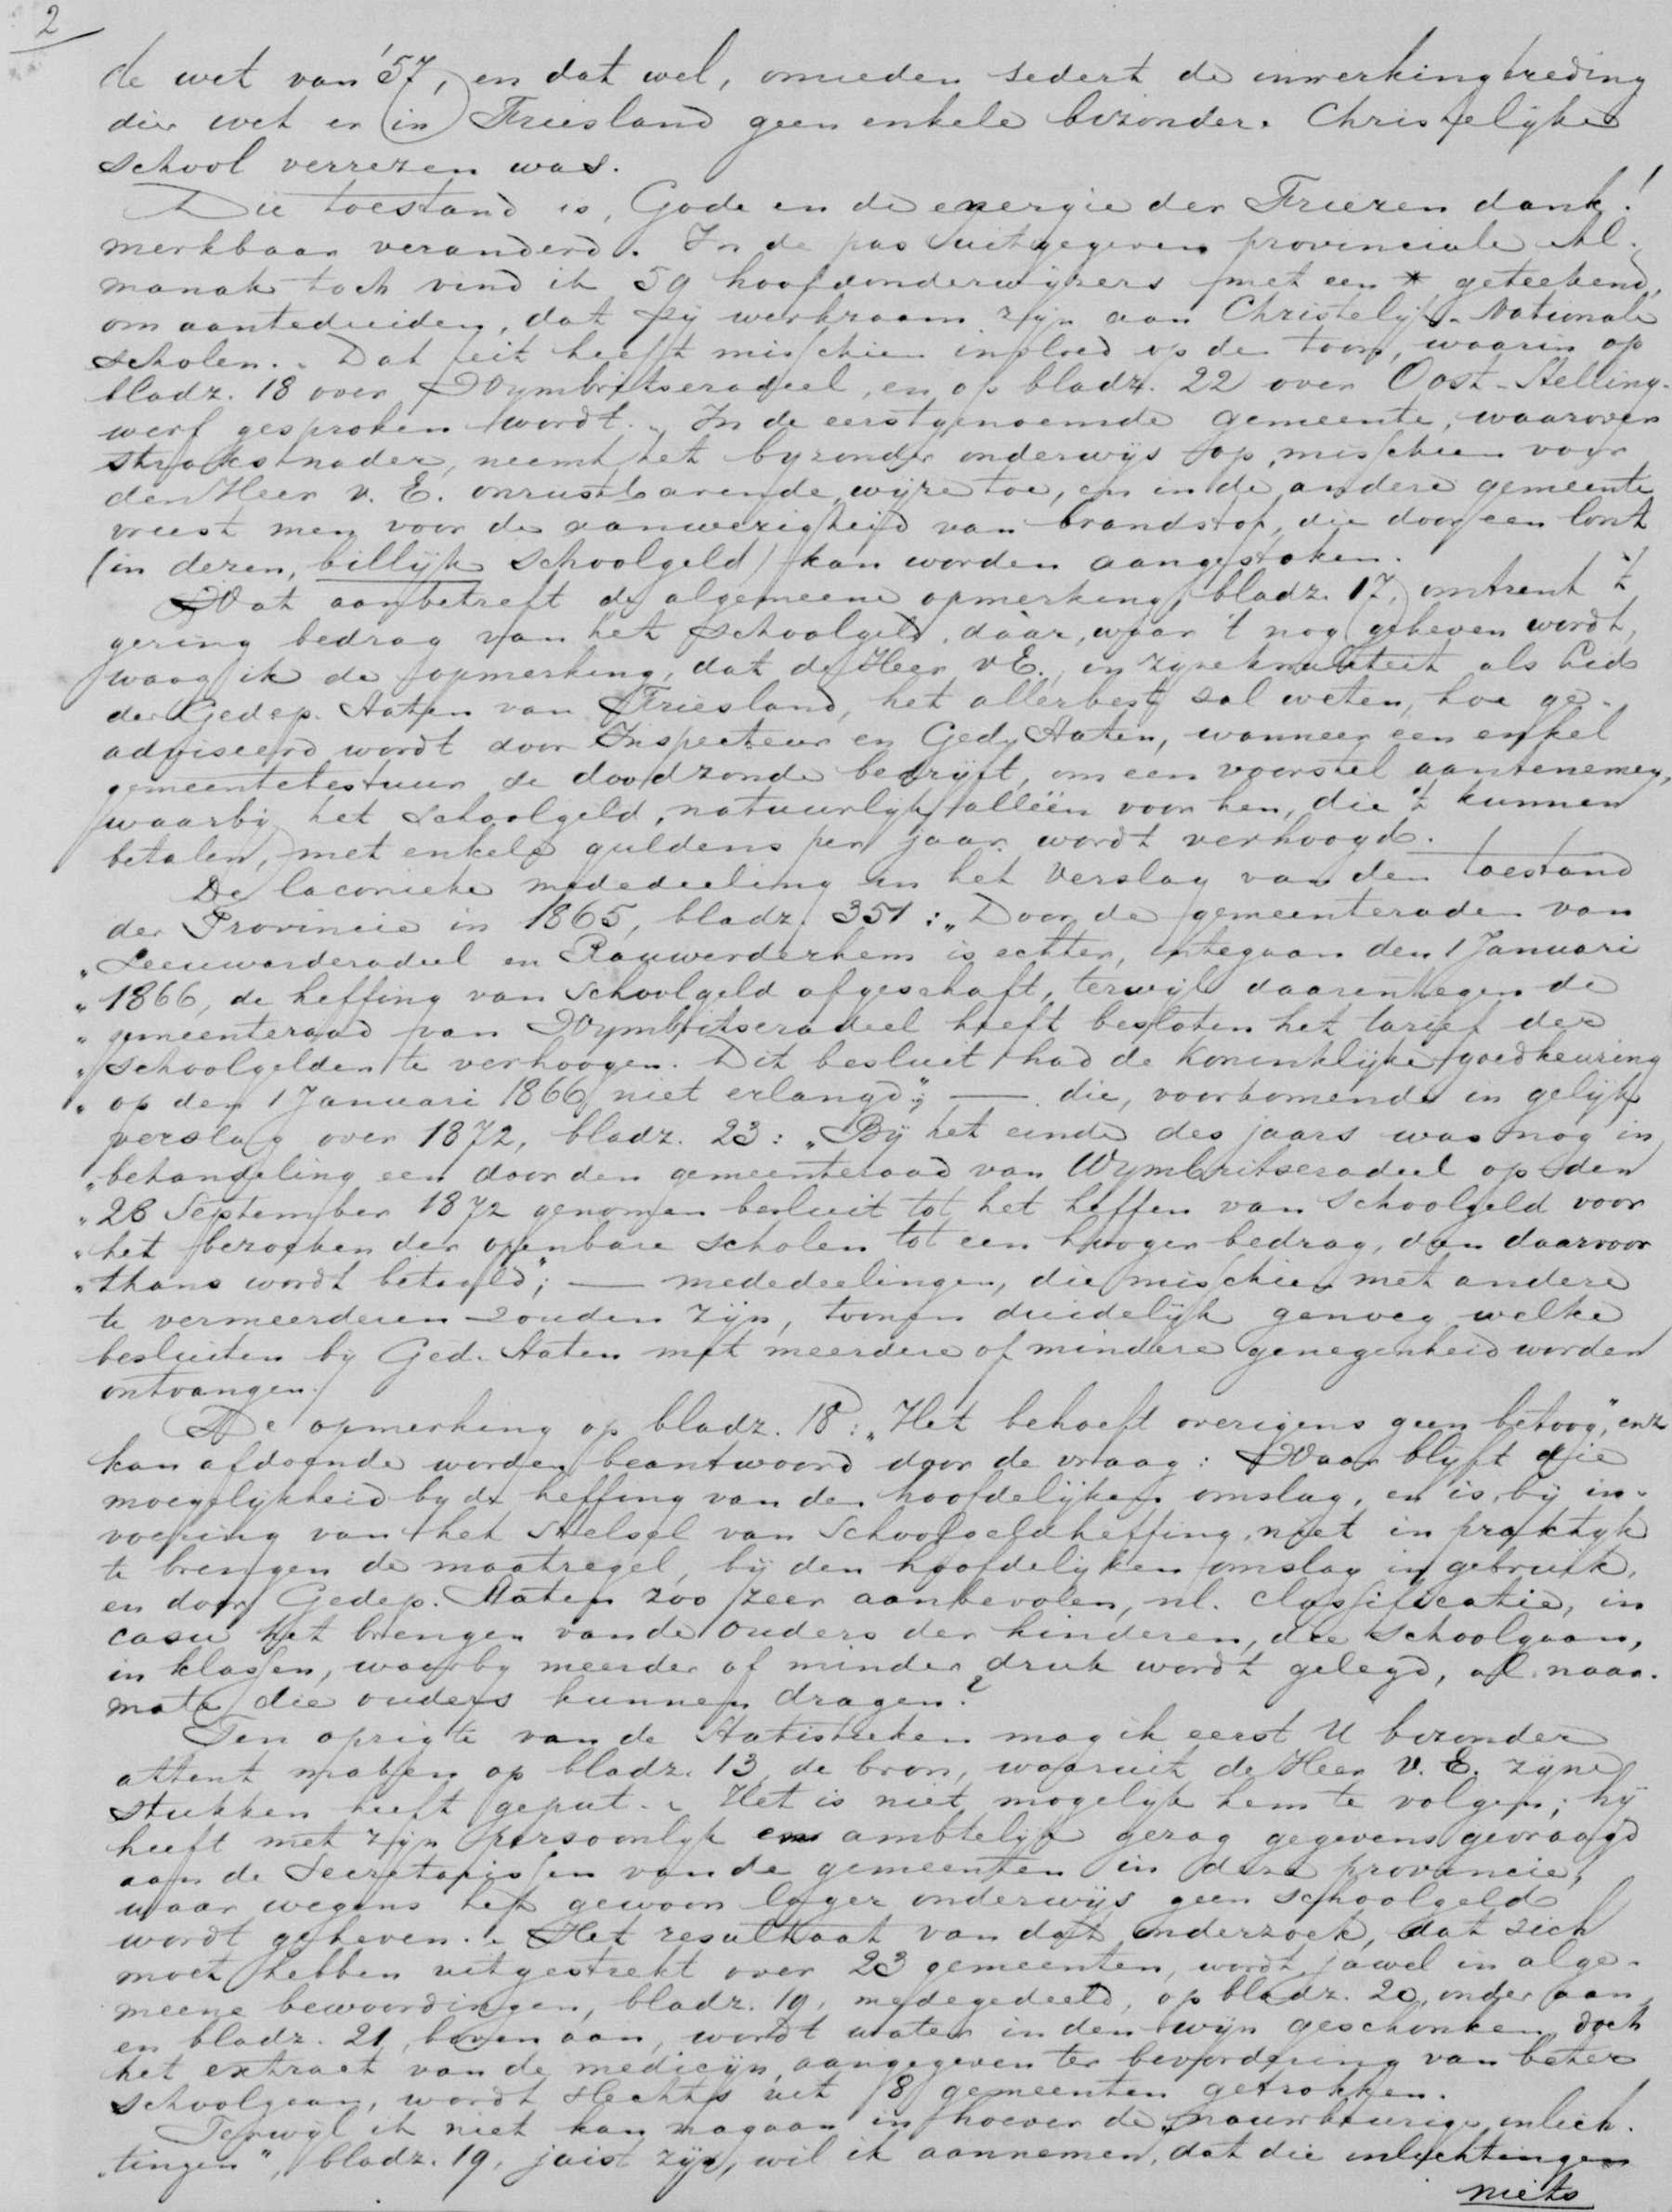 2
de wet van '57, en dat wel, omreden sedert de inwerkingtreding
dier wet er (in) Friesland geen enkele bizonder. Christelijke
school verrezen was.
Die toestand is, Gode en de energie der Friezen dank!
merkbaar veranderd. In de pas uitgegeven provinciale Al-
manak toch vind ik 59 hoofdonderwijzers met een * geteekend,
om aanteduiden, dat zij werkzaam zijn aan Christelijk-Nationale
scholen. Dat feit heeft misschien invloed op den toon, waarin op
bladz. 18 over Wymbritseradeel, en op bladz. 22 over Oost-Stelling-
werf gesproken wordt. In de eerstgenoemde gemeente, waarover
straks nader, neemt het byzonder onderwijs op, misschien voor
den Heer v. E. onrustbarende wijze toe, en in de andere gemeente
vreest men voor de aanwezigheid van brandstof, die door een lont
(in dezen, billijk schoolgeld) kan worden aangestoken.
Wat aanbetreft de algemeene opmerking, bladz. 17, omtrent 't
gering bedrag van het schoolgeld, dáár, waar 't nog geheven wordt,
waag ik de opmerking, dat de Heer v E., in zijne kwaliteit als Lid
der Gedep. Staten van Friesland, het allerbest sal weten, hoe ge-
adviseerd wordt door Inspecteur en Gedp Staten, wanneer een enkel
gemeentebestuur de doodzonde bedrijft, om een voorstel aantenemen,
waarbij het schoolgeld, natuurlijk alléén voor hen, die 't kunnen
betalen, met enkele guldens per jaar wordt verhoogd.
De laconieke mededeeling in het Verslag van den toestand
der Provincie in 1865, bladz. 351: „Door de gemeenteraden van
„Leeuwarderadeel en Rauwerderhem is echter, integaan den 1 Januari
„1866, de heffing van Schoolgeld afgeschaft, terwijl daarentegen de
„gemeenteraad van Wymbritseradeel heeft besloten het tarief der
„schoolgelden te verhoogen. Dit besluit had de Koninklijke goedkeuring
„op den 1 Januari 1866 niet erlangd"; — die, voorkomende in gelijk
verslag over 1872, bladz. 23: „Bij het einde des jaars was nog in
„behandeling een door den gemeenteraad van Wymbritseradeel op den
„28 September 1872 genomen besluit tot het heffen van Schoolgeld voor
„het bezoeken der openbare scholen tot een hooger bedrag, dan daarvoor
„thans wordt betaald"; — mededeelingen, die misschien met andere
te vermeerderen zouden zijn, toonen duidelijk genoeg welke
besluiten bij Ged. Staten met meerdere of mindere genegenheid worden
ontvangen.
De opmerking op bladz. 18: „Het behoeft overigens geen betoog", enz
kan afdoende worden beantwoord door de vraag: Waar blijft die
moegelijkheid by de heffing van den hoofdelijken omslag, en is, bij in-
voering van het stelsel van Schoolgeldheffing, niet in praktyk
te brengen de maatregel, bij den hoofdelijken omslag in gebruik,
en door Gedep. Staten zoo zeer aanbevolen, nl. classificatie, in
casu het brengen van de ouders der kinderen, die schoolgaan,
in klassen, waarby meerder of minder druk wordt gelegd, al naar-
mate die ouders kunnen dragen?
Ten opzigte van de Statistieken mag ik eerst U bizonder
attent maken op bladz. 13, de bron, waaruit de Heer v. E. zijne
stukken heeft geput. Het is niet mogelijk hem te volgen; hij
heeft met zijn persoonlyk en ambtelijk gezag gegevens gevraagd
aan de Secretarissen van de gemeenten in deze provincie,
waar wegens het gewoon lager onderwijs geen schoolgeld
wordt geheven. Het resultaat van dat onderzoek, dat zich
moet hebben uitgestrekt over 23 gemeenten, wordt, jawel in alge-
meene bewoordingen, bladz. 19, medegedeeld, op bladz. 20, onder aan
en bladz. 21, boven aan, wordt water in den wijn geschonken, doch
het extract van de medicijn, aangegeven ter bevordering van beter
schoolgaan, wordt slechts uit 8 gemeenten getrokken.
Terwijl ik niet kan nagaan in hoever de „nauwkeurige inlich-
„tingen", bladz. 19, juist zijn, wil ik aannemen, dat die inlichtingen
niets